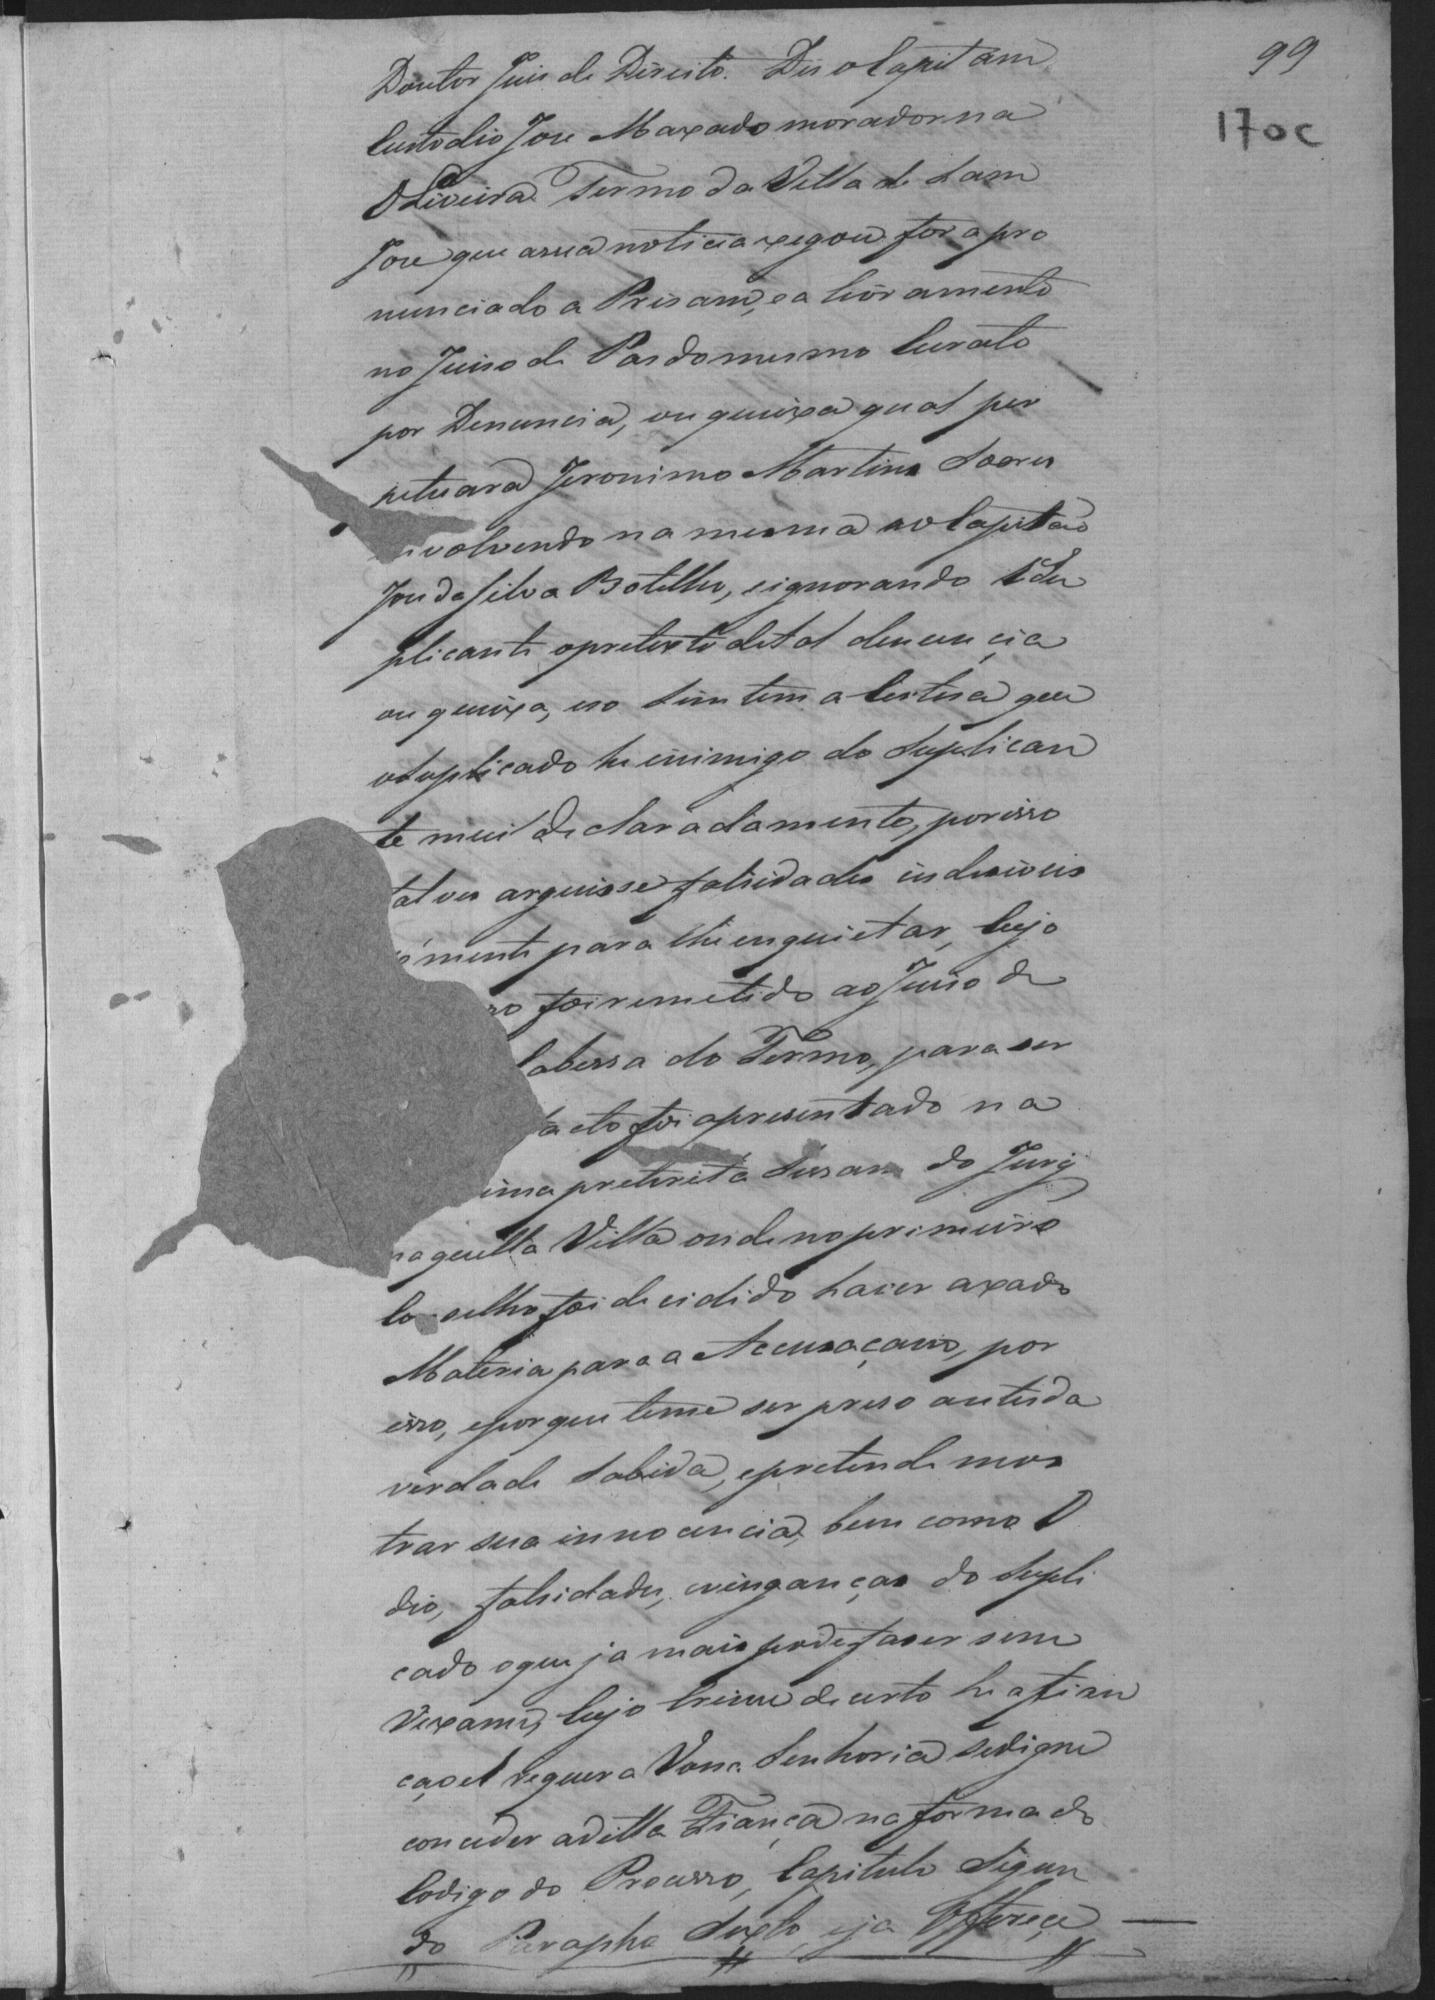 99
170c
Doutor Juis de Direito. Dis o Capitam
Custodio Jose Maxado morador na
Oliveira Termo da Villa de Sam
Jose que a sua noticia xegou fora pro
nunciado a Prisam, e a livramento
no Juiso de Pas do mesmo Curato
por Denuncia, ou queixa qual per
petuara Jeronimo Martins Soares
volvendo na mesma ao Capitão
Jose da Silva Botelho, e ignorando o Su
plicante o pretexto de tal denuncia
ou queixa, e so sim tem a Certesa que
o Suplicado he inimigo do Suplican
te mui declaradamente, por isso
talves arguisse falsidades indesiveis
mente para lhe enquietar, Cujo
foi remetido ao Juiso de
Cabessa do Termo, para ser
acto foi apresentado na
ima preterita Sessam do Jury
naquella Villa onde no primeiro
Conselho foi decidido haver axado
Materia para a Accusaçam, por
isso, e porque teme ser preso antes da
verdade Sabida, e pretende mos
trar sua innocencia, bem como O
dio, falsidades, e vinganças do Supli
cado o que ja mais pode faser sem
Vexame, Cujo Crime de certo he afian
çavel requer a Vossa Senhoria se digne
conceder a ditta Fiança na forma do
Codigo do Processo, Capitulo Segun
do Parapho Sexto, e ja Offerece